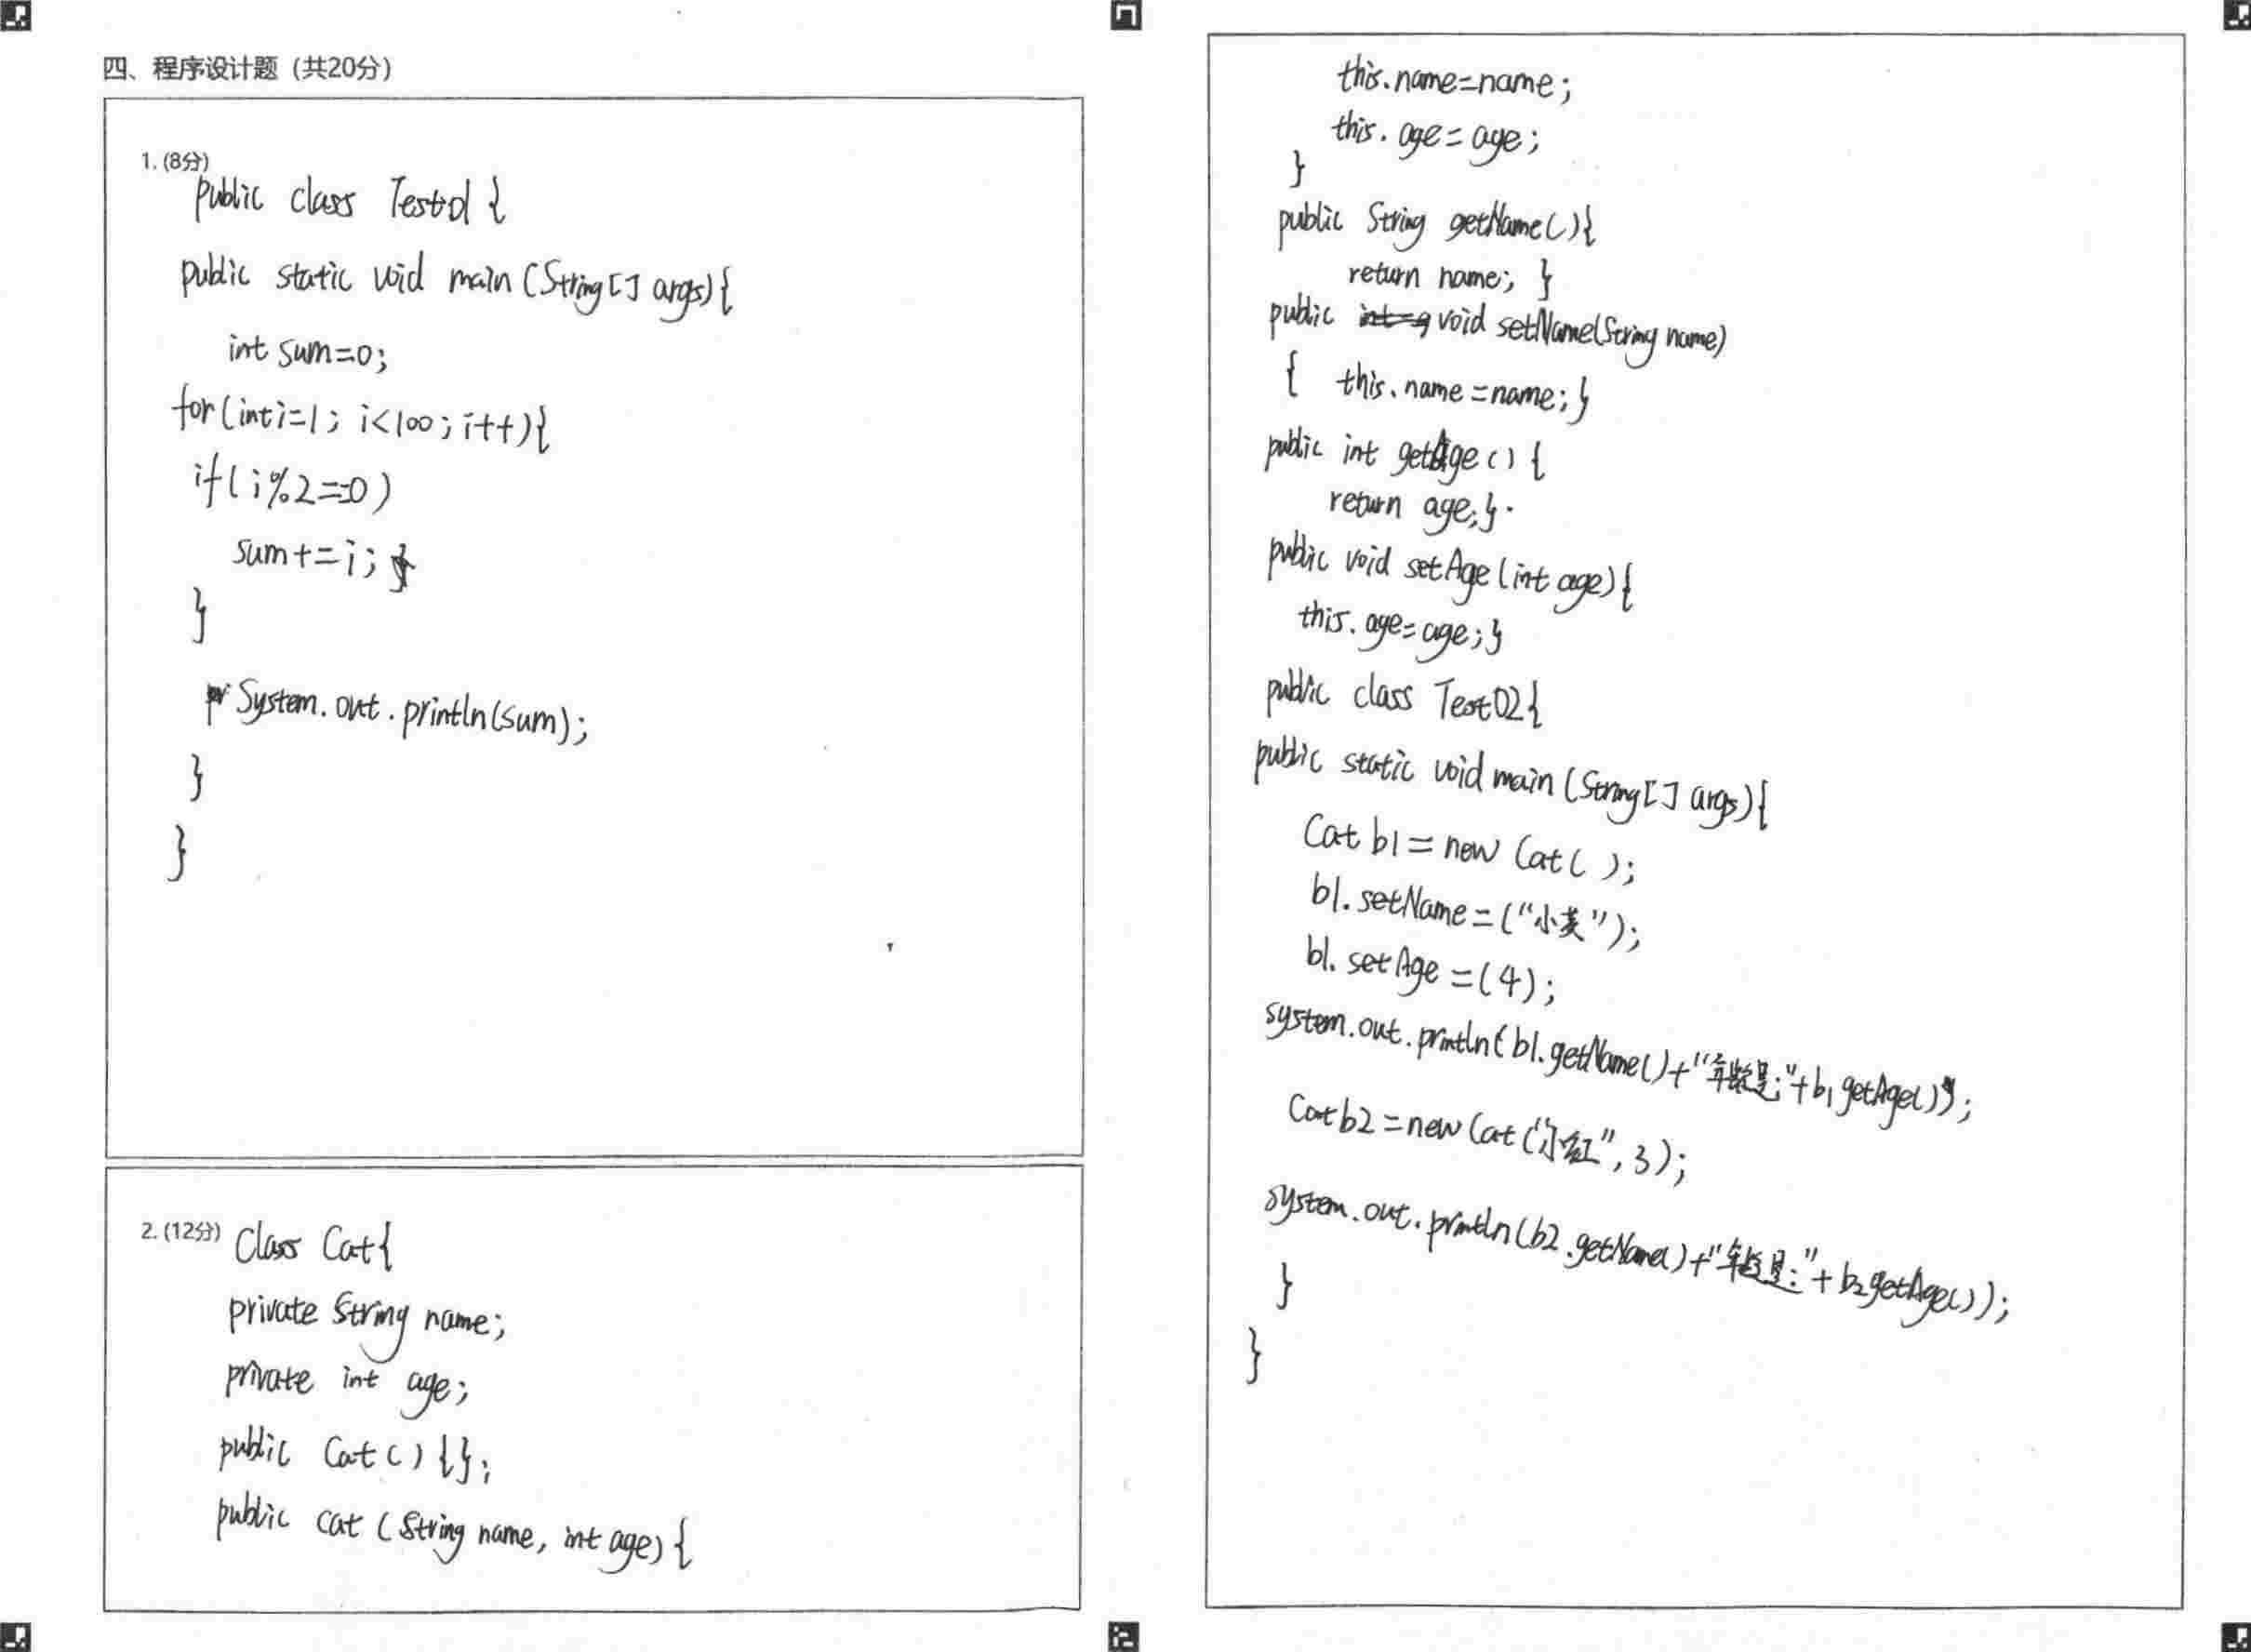 四、程序设计题（共20分）
1. (8分)
public class Test01 {
public static void main (String[] args){
int sum=0;
for(int i=1; i<100; i++){
if(i%2==0)
sum+=i;
}
System.out.println(sum);
}
}
2. (12分) Class Cat{
private String name;
private int age;
public Cat() {};
public cat (String name, int age) {
this.name=name;
this.age=age;
}
public String getName(){
return name; }
public void setName(String name)
{ this.name=name;}
public int getAge() {
return age;}
public void setAge(int age){
this.age=age;}
public class Test02{
public static void main (String[] args){
Cat b1=new Cat( );
b1.setName=("小美");
b1.setAge=(4);
system.out.println(b1.getName()+"年龄是:"+b1getAge());
Cat b2=new Cat("小红",3);
system.out.println(b2.getName()+"年龄是:"+b2getAge());
}
}